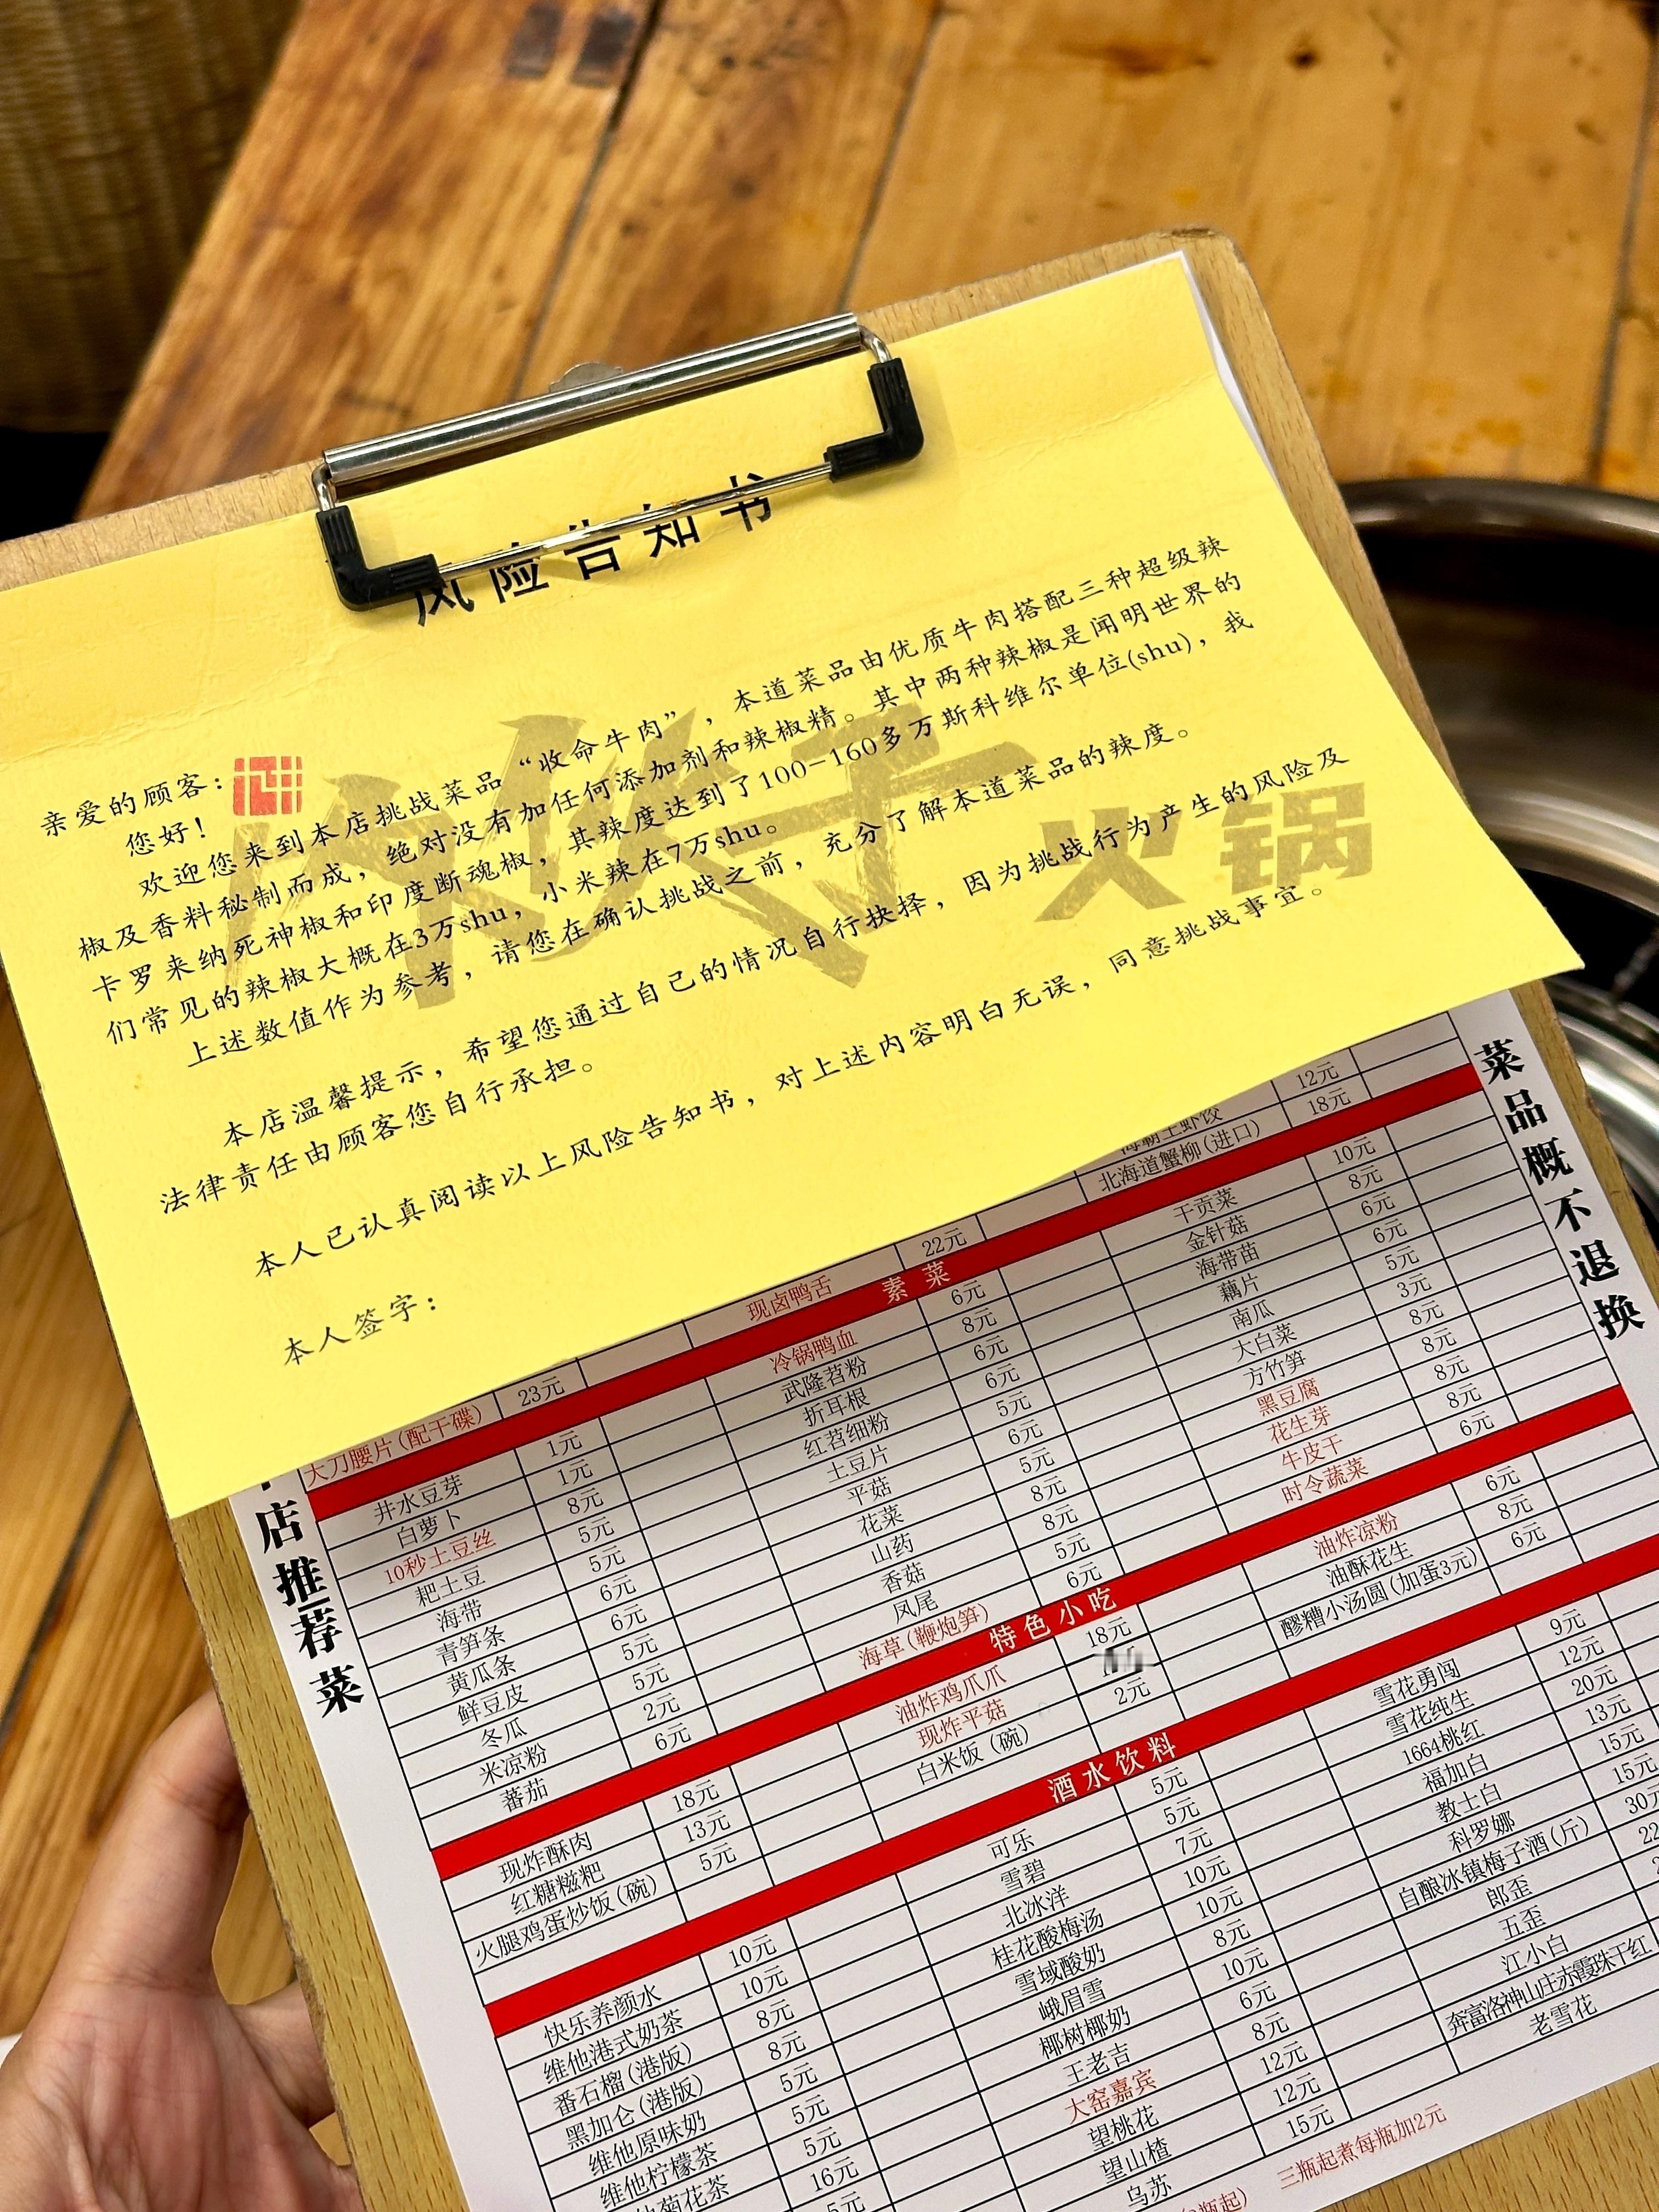 风险告知书
亲爱的顾客：
您好！
欢迎您来到本店挑战菜品“收命牛肉”，本道菜品由优质牛肉搭配三种超级辣
椒及香料秘制而成，绝对没有加任何添加剂和辣椒精。其中两种辣椒是闻明世界的
卡罗来纳死神椒和印度断魂椒，其辣度达到了100-160多万斯科维尔单位(shu)，我
们常见的辣椒大概在3万shu，小米辣在7万shu。
上述数值作为参考，请您在确认挑战之前，充分了解本道菜品的辣度。
本店温馨提示，希望您通过自己的情况自行抉择，因为挑战行为产生的风险及
法律责任由顾客您自行承担。
本人已认真阅读以上风险告知书，对上述内容明白无误，同意挑战事宜。
本人签字：
火锅
店推荐菜
菜品概不退换
12元
北海道蟹柳(进口) 18元
现卤鸭舌 22元
大刀腰片(配干碟) 23元
素菜
井水豆芽 1元
白萝卜 1元
10秒土豆丝 8元
耙土豆 5元
海带 5元
青笋条 6元
黄瓜条 6元
鲜豆皮 5元
冬瓜 5元
米凉粉 2元
蕃茄 6元
冷锅鸭血 6元
武隆苕粉 8元
折耳根 6元
红苕细粉 6元
土豆片 5元
平菇 6元
花菜 8元
山药 8元
香菇 5元
凤尾 6元
海草(鞭炮笋)
干贡菜 10元
金针菇 8元
海带苗 6元
藕片 6元
南瓜 5元
大白菜 3元
方竹笋 8元
黑豆腐 8元
花生芽 8元
牛皮干 8元
时令蔬菜 6元
特色小吃
现炸酥肉 18元
红糖糍粑 13元
火腿鸡蛋炒饭(碗) 5元
油炸鸡爪爪 18元
现炸平菇
白米饭(碗) 2元
油炸凉粉 6元
油酥花生 8元
醪糟小汤圆(加蛋3元) 6元
酒水饮料
快乐养颜水 10元
维他港式奶茶 10元
番石榴(港版) 8元
黑加仑(港版) 8元
维他原味奶 5元
维他柠檬茶 5元
菊花茶 5元
16元
5元
可乐 5元
雪碧 5元
北冰洋 7元
桂花酸梅汤 10元
雪域酸奶 10元
峨眉雪 8元
椰树椰奶 10元
王老吉 6元
大窑嘉宾 8元
望桃花 12元
望山楂 12元
乌苏 15元
雪花勇闯 9元
雪花纯生 12元
1664桃红 20元
福加白 13元
教士白 15元
科罗娜 15元
自酿冰镇梅子酒(斤) 30元
郎歪 22
五歪
江小白
奔富洛神山庄赤霞珠干红
老雪花
三瓶起煮每瓶加2元